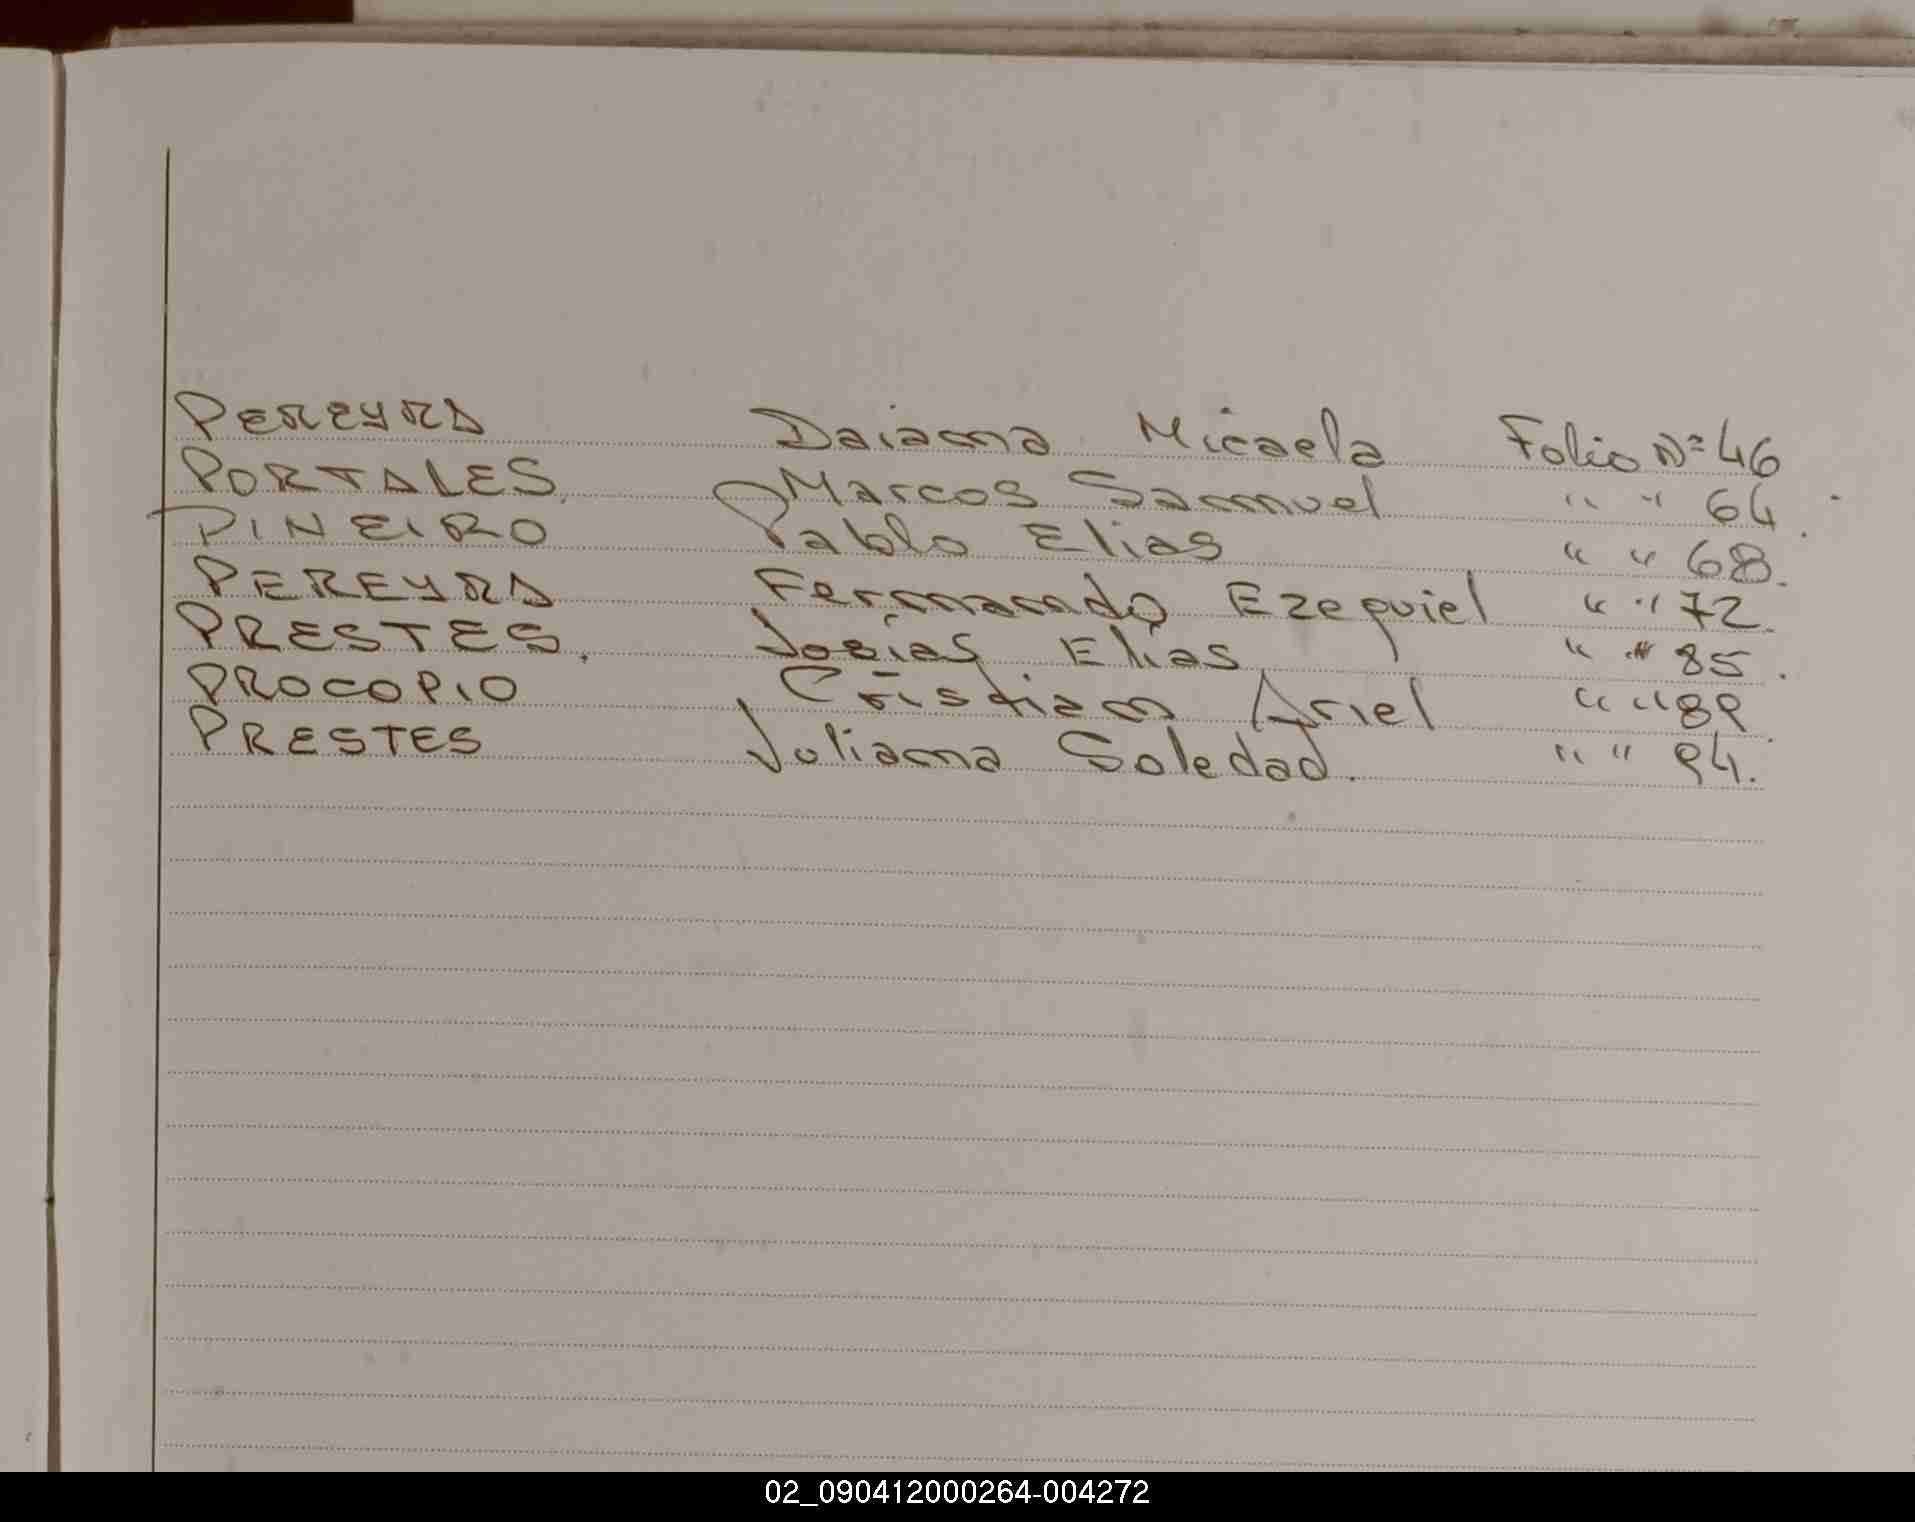 PEREYRA Daiana Micaela Folio Nº 46
PORTALES. Marcos Samuel " " 64.
PINEIRO Pablo Elias " " 68.
PEREYRA Fernando Ezequiel " " 72.
PRESTES. Josias Elias " " 85.
PROCOPIO Cristian Ariel " " 89.
PRESTES Juliana Soledad. " " 94.
02_090412000264-004272